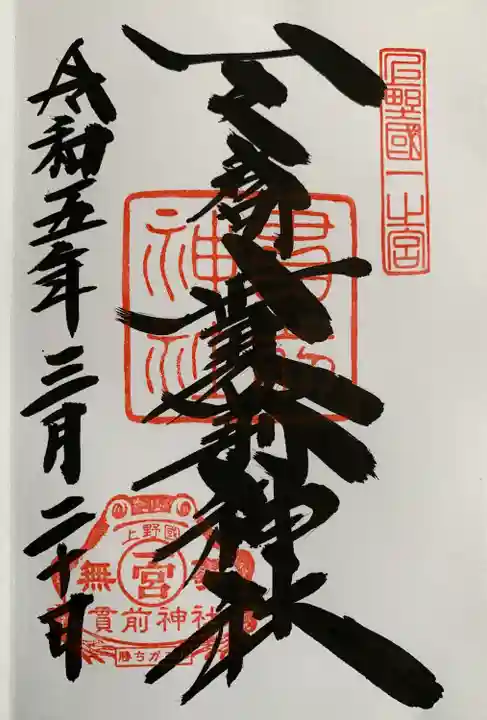 上野國一之宮
一之宮貫前神社
貫前
神社
上野國
宮
無
貫前神社
勝ちが
令和五年三月二十日